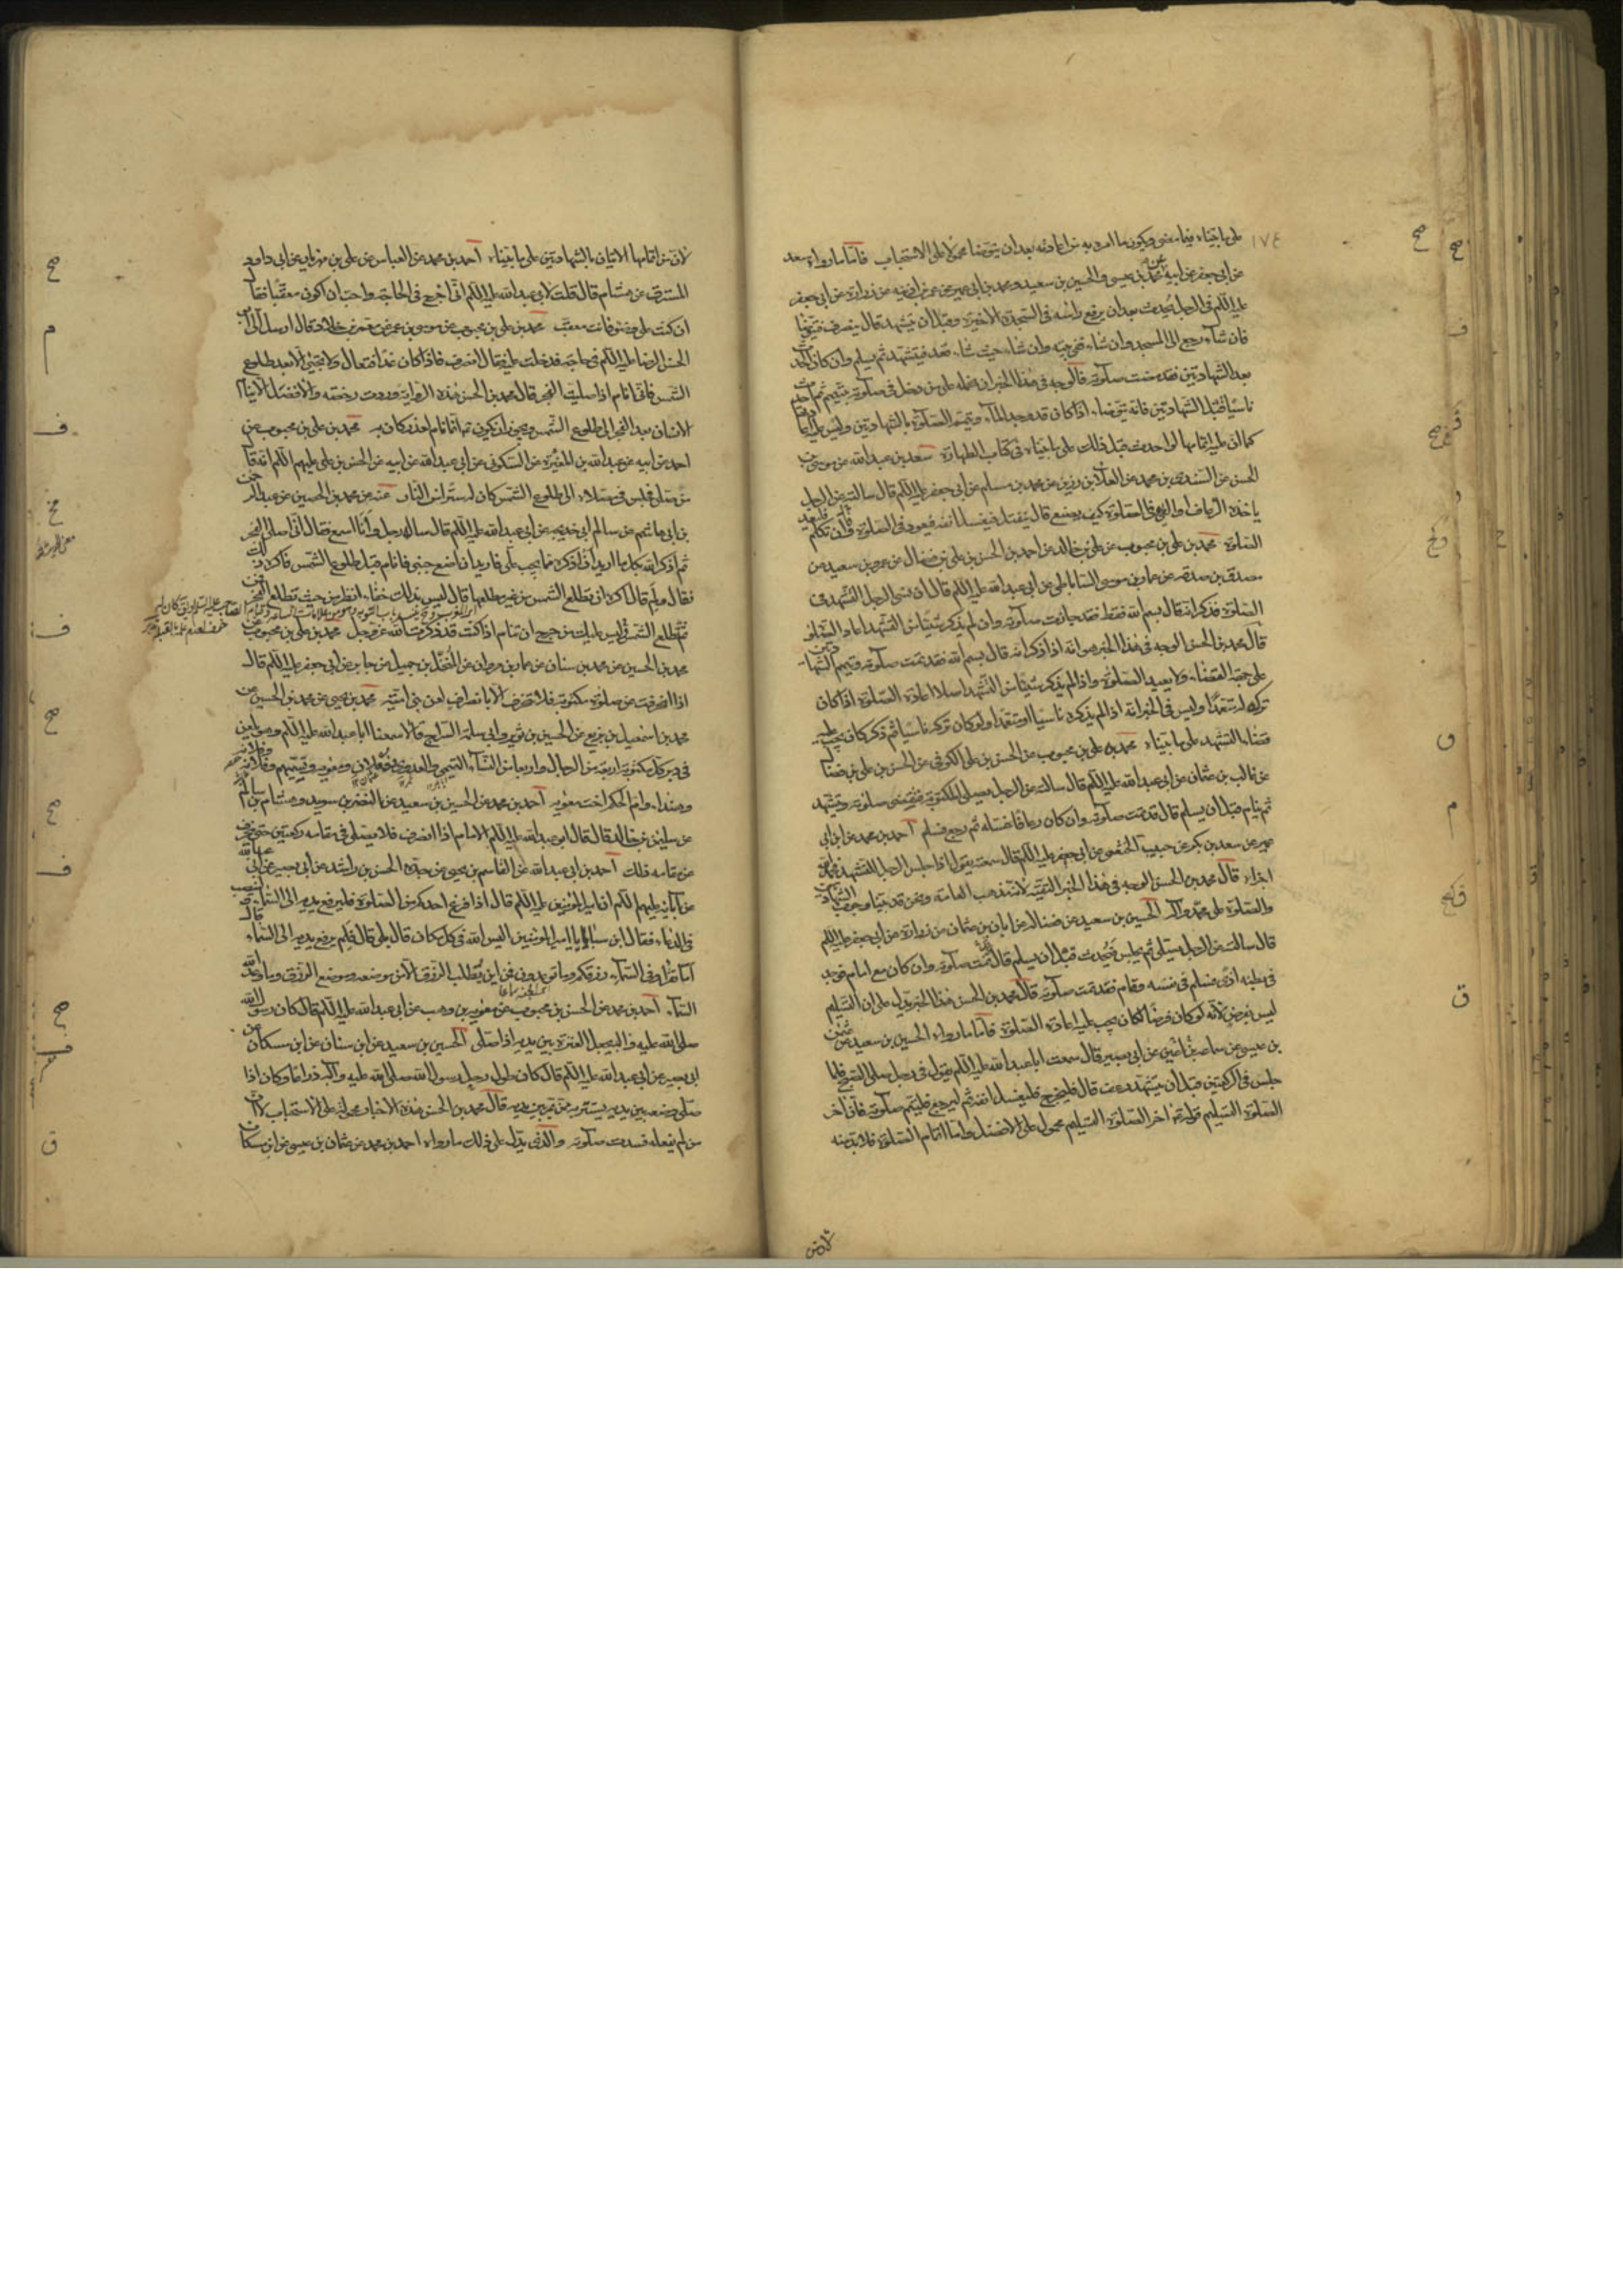 على ما بيّناه فيما مضى ويكون ما امر به من اعادته بعد ان يتوضا محمولا على الاستحباب فاما ما رواه سعد
عن ابي جعفر عن ابيه محمد بن عيسى والحسين بن سعيد ومحمد بن ابي عمير عن عمر بن اذينه عن زرارة عن ابي جعفر
عليه السلم في الرجل يحدث بعد ان يرفع راسه في السجدة الاخيرة وقبل ان يتشهد قال ينصرف فيتوضا
فان شاء رجع الى المسجد وان شاء ففي بيته وان شاء حيث شاء قعد فيتشهد ثم يسلم وان كان الحدث
بعد الشهادتين فقد مضت صلوته فالوجه في هذا الخبر ان نحمله على من دخل في صلوته بتيمم ثم احدث
ناسيا قبل الشهادتين فانه يتوضا اذا كان قد وجد الماء ويتم الصلوة بالشهادتين وليس عليه اعادتها
كما ان عليه اتمامها لو احدث قبل ذلك على ما بيناه في كتاب الطهارة سعد بن عبد الله عن موسى بن
الحسن عن السندي بن محمد عن العلا بن رزين عن محمد بن مسلم عن ابي جعفر عليه السلم قال سالته عن الرجل
ياخذه الرعاف او القيء في الصلوة كيف يصنع قال ينفتل فيغسل انفه ويعود في الصلوة وان تكلم فليعد
الصلوة محمد بن علي بن محبوب عن علي بن خالد عن احمد بن الحسن بن علي بن فضال عن عمرو بن سعيد عن
مصدق بن صدقه عن عمار بن موسى الساباطي عن ابي عبد الله عليه السلم قال ان نسي الرجل التشهد في
الصلوة فذكر انه قال بسم الله فقط فقد جازت صلوته وان لم يذكر شيئا من التشهد اعاد الصلوة
قال محمد بن الحسن الوجه في هذا الخبر هو انه اذا ذكر انه قال بسم الله فقد تمت صلوته ويتمم الشهادتين
على جهة القضاء ولا يعيد الصلوة واذا لم يذكر شيئا من التشهد اصلا اعاد الصلوة اذا كان
تركه له متعمدا وليس في الخبر انه اذا لم يذكره ناسيا او متعمدا ولو كان تركه ناسيا ثم ذكر كان يجب عليه
قضاء التشهد على ما بيناه محمد بن علي بن محبوب عن الحسن بن علي الكوفي عن الحسن بن علي بن فضال
عن غالب بن عثمان عن ابي عبد الله عليه السلم قال سالته عن الرجل يصلي المكتوبة فيقضي صلوته ويتشهد
ثم ينام قبل ان يسلم قال قد تمت صلوته وان كان رعافا غسله ثم رجع فسلم احمد بن محمد عن ابن ابي
عمير عن سعد بن بكر عن حبيب الخثعمي عن ابي جعفر عليه السلم قال سمعته يقول اذا جلس الرجل للتشهد فحمد الله
اجزاه قال محمد بن الحسن الوجه في هذا الخبر التقية لانه مذهب العامة ونحن قد بينا وجوب الشهادتين
والصلوة على محمد وآله الحسين بن سعيد عن فضالة عن ابان بن عثمان عن زرارة عن ابي جعفر عليه السلم
قال سالته عن الرجل يصلي ثم يجلس فيحدث قبل ان يسلم قال تمت صلوته وان كان مع امام فوجد
في بطنه اذى فسلم في نفسه وقام فقد تمت صلوته قال محمد بن الحسن هذا الخبر يدل على ان التسليم
ليس بفرض لانه لو كان فرضا لكان يجب عليه اعادة الصلوة فاما ما رواه الحسين بن سعيد عن عثمن
بن عيسى عن سماعة عن ابي بصير قال سمعت ابا عبد الله عليه السلم يقول في رجل صلى الصبح فلما
جلس في الركعتين قبل ان يتشهد رعف قال فليخرج فليغسل انفه ثم ليرجع فليتم صلوته فان اخر
الصلوة التسليم قوله ان اخر الصلوة التسليم محمول على الافضل واما اتمام الصلوة فلا بد منه
لان من
لان من اتمامها الاتيان بالشهادتين على ما بيناه احمد بن محمد عن العباس عن علي بن مهزيار عن ابي داود
المسترق عن هشام قال قلت لابي عبد الله عليه السلم اني اخرج في الحاجة واحب ان اكون معقبا فقال
ان كنت على وضوء فانت معقب محمد بن علي بن محبوب عن موسى بن عمر عن معمر بن خلاد قال ارسل الي ابو
الحسن الرضا عليه السلم في حاجة فدخلت عليه فقال انصرف فاذا كان غدا فتعال ولا تجئني الا بعد طلوع
الشمس فاني انام اذا صليت الفجر قال محمد بن الحسن هذه الرواية وردت رخصة والافضل الا ينام
الانسان بعد الفجر الى طلوع الشمس ويجوز ان يكون انما نام لعذر كان به محمد بن علي بن محبوب عن
احمد عن ابيه عن عبد الله بن المغيرة عن السكوني عن ابي عبد الله عن ابيه عن الحسن بن علي عليهم السلم انه قال
من صلى فجلس في مصلاه الى طلوع الشمس كان له سترا من النار عنه عن محمد بن الحسين عن عبد الرحمن
بن ابي هاشم عن سالم ابي خديجه عن ابي عبد الله عليه السلم قال ساله رجل وانا اسمع فقال اني اصلي الفجر
ثم اذكر الله بكل ما اريد ان اذكره مما يجب علي فاريد ان اضع جنبي فانام قبل طلوع الشمس فاكره ذلك
فقال ولم قال اكره ان تطلع الشمس من غير مطلعها قال ليس بذلك خفاء انظر من حيث تطلع الفجر
فثم تطلع الشمس ليس عليك من حرج ان تنام اذا كنت قد ذكرت الله عز وجل محمد بن علي بن محبوب عن
محمد بن الحسين عن محمد بن سنان عن عمار بن مروان عن المنخل بن جميل عن جابر عن ابي جعفر عليه السلم قال
اذا انحرفت عن صلوة مكتوبة فلا تنحرف الا بانصراف لعن بني امية محمد بن يحيى عن محمد بن الحسين عن
محمد بن اسمعيل بن بزيع عن الحسين بن ثوير وابي سلمة السراج قالا سمعنا ابا عبد الله عليه السلم وهو يلعن
في دبر كل مكتوبة اربعة من الرجال واربعا من النساء التيمي والعدوي وفلان ومعويه ويسميهم وفلانة وفلانة
وهندا وام الحكم اخت معويه احمد بن محمد عن الحسين بن سعيد عن النضر بن سويد وهشام بن سالم
عن سليمن بن خالد قال قال ابو عبد الله عليه السلم الامام اذا انصرف فلا يصلي في مقامه ركعتين حتى ينحرف
عن مقامه ذلك احمد بن ابي عبد الله عن القاسم بن يحيى عن جده الحسن بن راشد عن ابي بصير عن ابي عبد الله
عن آبائه عليهم السلم ان امير المؤمنين عليه السلم قال اذا فرغ احدكم من الصلوة فليرفع يديه الى السماء ولينصب
في الدعاء فقال ابن سبا يا امير المؤمنين اليس الله في كل مكان قال بلى قال فلم يرفع يديه الى السماء قال
اما تقرا وفي السماء رزقكم وما توعدون فمن اين يطلب الرزق الا من موضعه وموضع الرزق وما وعد الله
السماء احمد بن محمد عن الحسن بن محبوب عن معويه بن وهب عن ابي عبد الله عليه السلم قال كان رسول الله
صلى الله عليه وآله يجعل العنزة بين يديه اذا صلى الحسين بن سعيد عن ابن سنان عن ابن مسكان عن
ابي بصير عن ابي عبد الله عليه السلم قال كان طول رحل رسول الله صلى الله عليه وآله ذراعا وكان اذا
صلى وضعه بين يديه يستتر به ممن يمر بين يديه قال محمد بن الحسن هذه الاخبار محمولة على الاستحباب لان
من لم يفعله فسدت صلوته والذي يدل على ذلك ما رواه احمد بن محمد عن عثمان بن عيسى عن ابن مسكان